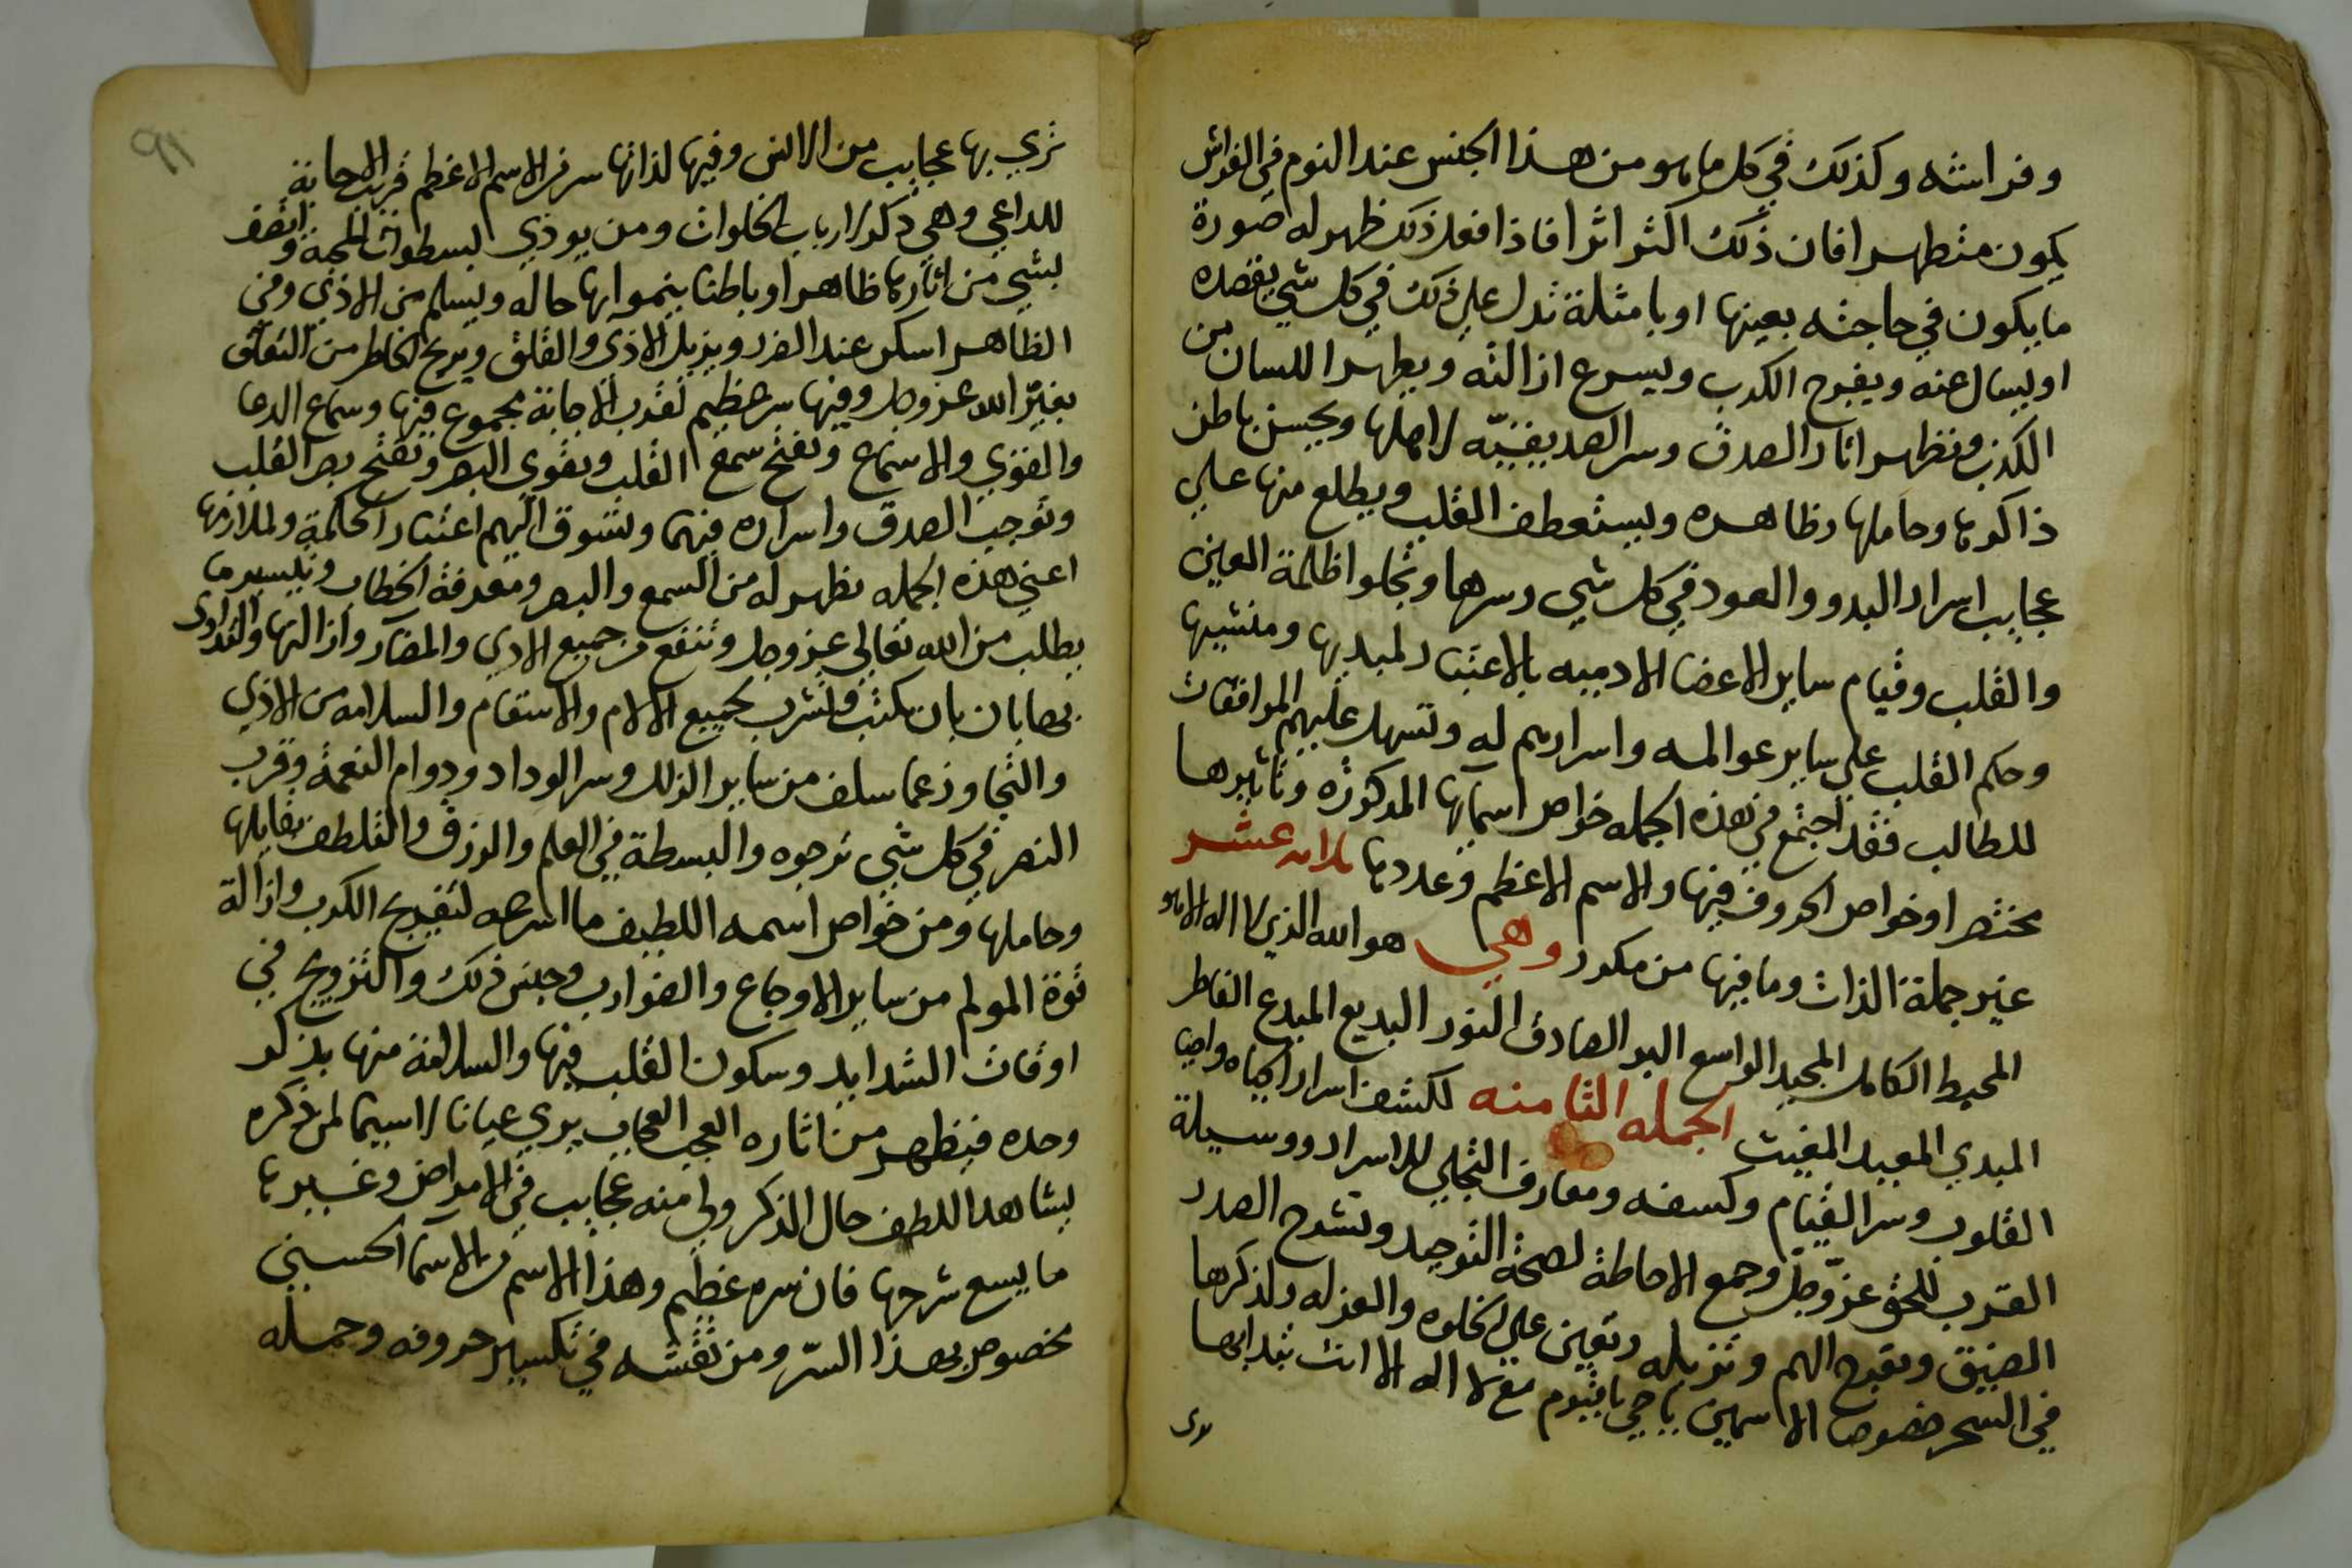 وفراسته وكذلك في كل ما هو من هذا الجنس عند النوم في الفراش
يكون متطهرا فان ذلك اكثر اثرا فاذا فعل ذلك ظهر له صورة
ما يكون في حاجته بعينها او بامثلة تدل علي ذلك في كل شي يقصده
او يسال عنه ويفرح الكرب ويسرع ازالته ويطهر اللسان من
الكذب وتظهر اثار الصدق وسر الصديقيّه لاهلها ويحسن باطن
ذاكرها وحاملها وظاهره ويستعطف القلب ويطلع منها علي
عجايب اسرار البدو والعود في كل شي وسرها وتجلوا ظلمة العين
والقلب وقيام ساير الاعضا الادميه بالاعتبار لمبديها ومنشيها
وحكم القلب علي ساير عوالمه واسرارهم له وتسهل عليهم الموافقات
للطالب فقد اجتمع في هذه الجمله خواص اسمايها المذكوره وتاثيرها
مختصرا وخواص الحروف فيها والاسم الاعظم وعددها ثلاثه عشر
غير جملة الذات وما فيها من مكرر وهي هو الله الذي لا اله الا هو
المحيط الكامل المجيد الواسع البر الصادق النور البديع المبدع الفاطر
المبدي المعيد المغيث الجمله الثامنه لكشف اسرار الحياه واحيا
القلوب وسر القيام وكشفه ومعارف التجلي للاسرار ووسيلة
القرب للحق عزّ وجل وجمع الاحاطة لصحة التوحيد وتشرح الصدر
الضيق وتفرح الهم وتزيله وتعين علي الخلوه والعزله ولذكرها
في السحر خصوصا الاسمين يا حي يا قيوم مع لا اله الا انت تبدا بها
ترى
تري بها عجايب من الانس وفيها لذاتها سر من الاسم الاعظم قريب الاجابة
للداعي وهي ذكر لارباب الخلوات ومن يوذي لسطوات المحبة واتصف
بشي من اثارها ظاهرا وباطنا ينموا بها حاله ويسلم من الاذي وفي
الظاهر اسكن عند الضر ويزيل الاذي والقلق ويريح الخاطر من التعلق
بغير الله عز وجل وفيها سر عظيم لقرب الاجابة مجموع فيها وسماع الدعا
والقوي والاسماع وتفتح سمع القلب وتقوي البصر وتفتح بصر القلب
وتوجب الصدق واسراره فيهما وتشوق اليهم اعتبار الحكمة ولملازمها
اعني هذه الجمله تظهر له من السمع والبصر ومعرفة الخطاب وتيسير ما
يطلب من الله تعالي عز وجل وتنفع من جميع الاذي والمضار وازالتها والتداوى
بها بان بان تكتب وتشرب لجميع الالام والاسقام والسلامه من الاذي
والتجاوز عما سلف من ساير الزلل وسر الوداد ودوام النعمة وقرب
النصر في كل شي ترجوه والبسطة في العلم والرزق والتلطف بقايلها
وحاملها ومن خواص اسمه اللطيف ما اسرعه لتفريح الكرب وازالة
قوة المولم من ساير الاوجاع والضوارب وجنس ذلك والتزويج في
اوقات الشدايد وسكون القلب فيها والسلامة منها بذكر
وحده فيظهر من اثاره العجب العجاب يري عيانا لا سيما لمن ذكره
يشاهد اللطف حال الذكر ولي منه عجايب في الامراض وغيرها
ما يسع شرحها فان سره عظيم وهذا الاسم من الاسما الحسني
مخصوص بهذا السرّ ومن نقشه في تكسير حروفه وحمله